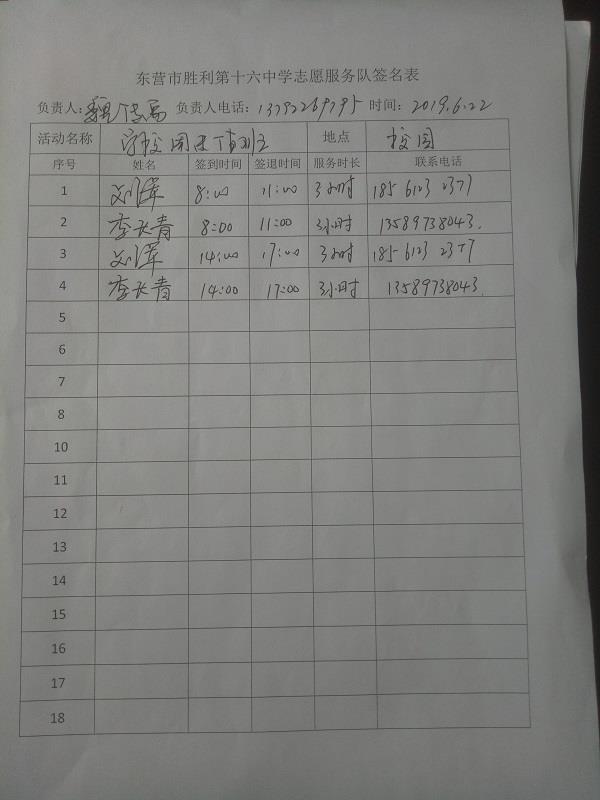 东营市胜利第十六中学志愿服务队签名表
负责人: 负责人电话: 13792269795 时间: 2019.6.22
活动名称 学校周末值班 地点 校园
序号 姓名 签到时间 签退时间 服务时长 联系电话
1 刘军 8:00 11:00 3小时 185 6123 2377
2 李长青 8:00 11:00 3小时 13589738043.
3 刘军 14:00 17:00 3小时 185 6123 2377
4 李长青 14:00 17:00 3小时 13589738043.
5
6
7
8
10
11
12
13
14
15
16
17
18